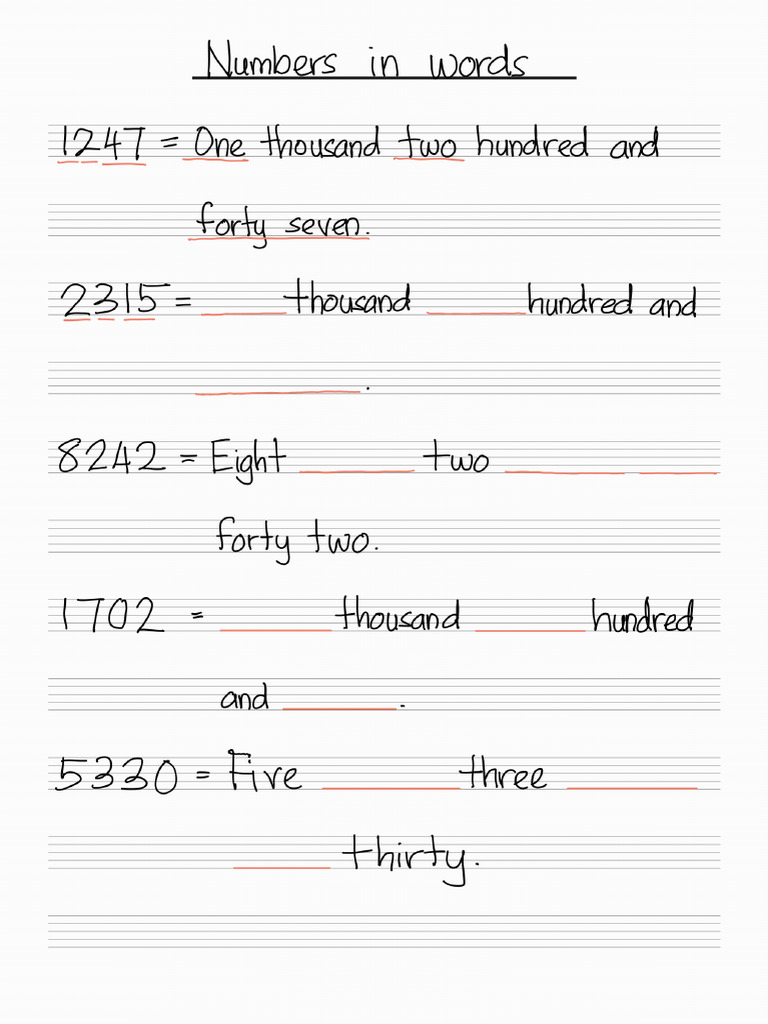 Numbers in words
1247 = One thousand two hundred and
forty seven.
2315 = ____ thousand ____ hundred and
____.
8242 = Eight ____ two ____ ____
forty two.
1702 = ____ thousand ____ hundred
and ____.
5330 = Five ____ three ____
____ thirty.